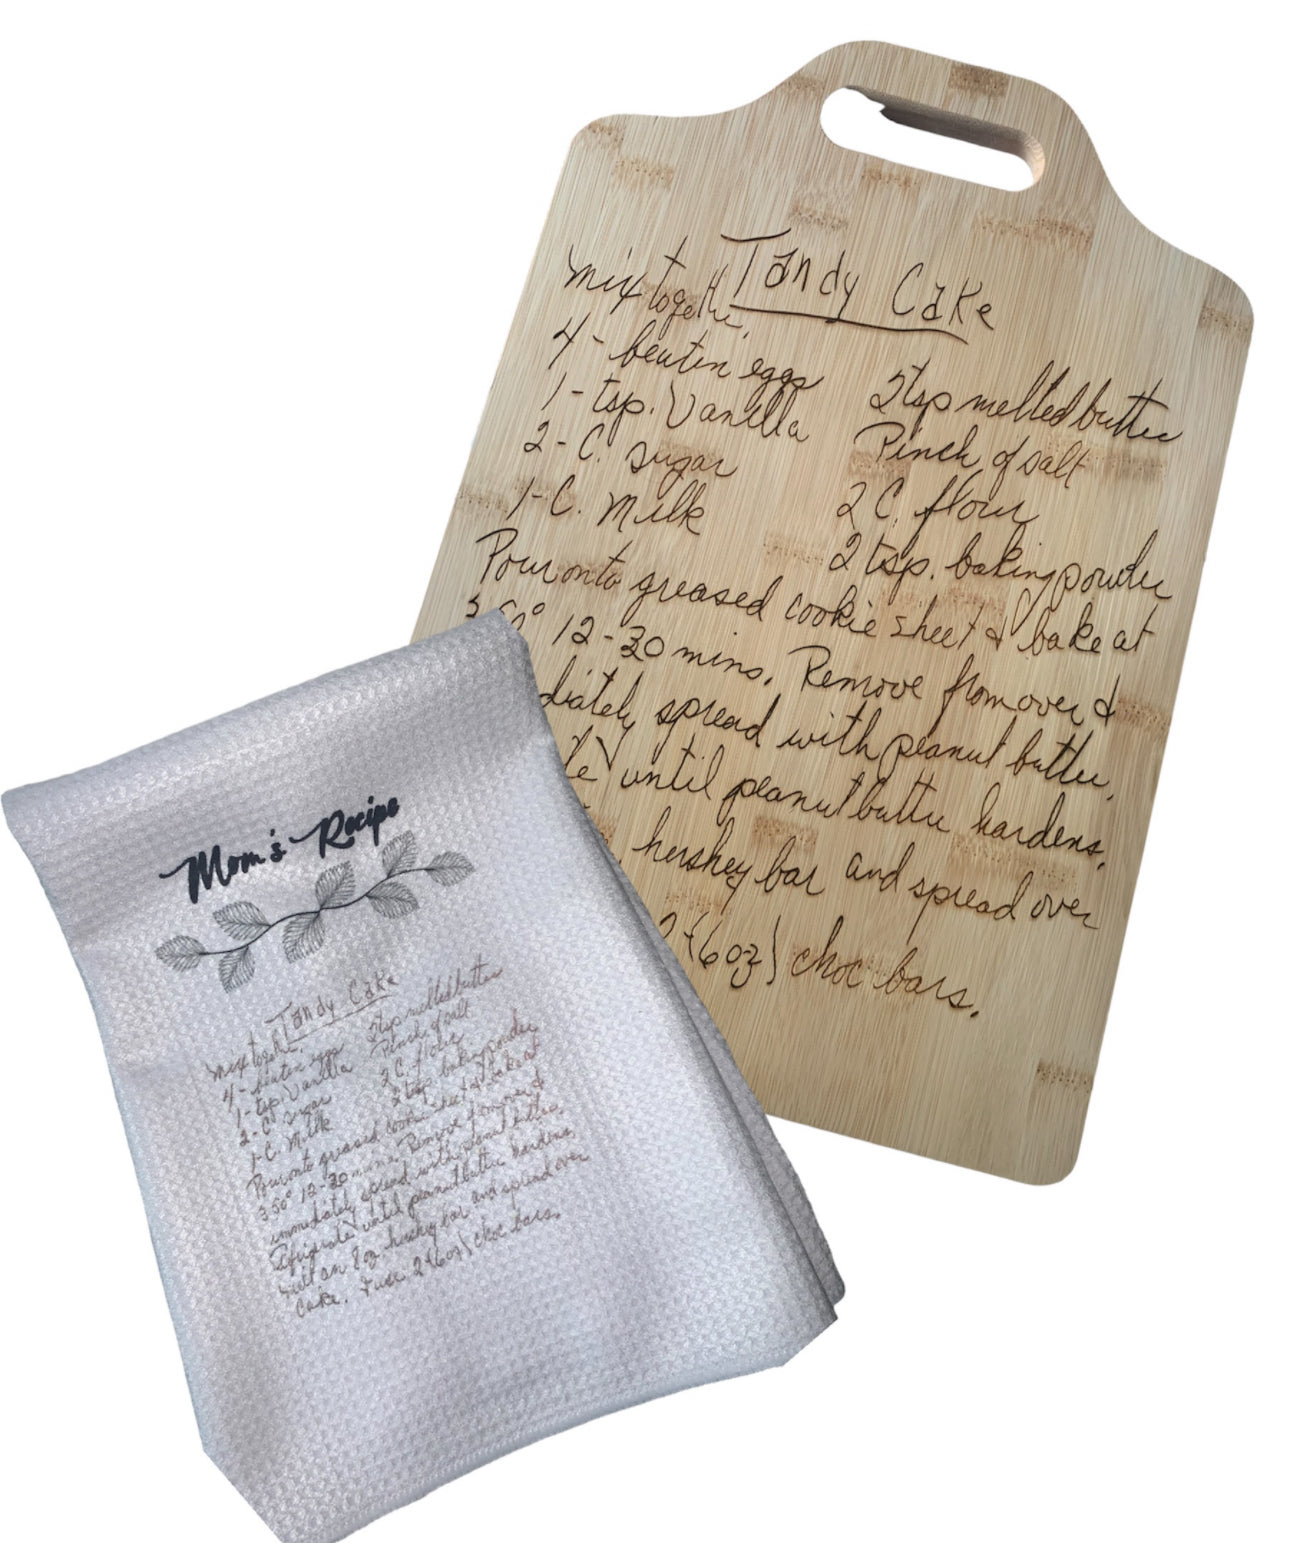 Tandy Cake
mix togeth.
4 - beaten eggs
1 - tsp. Vanilla
2 - C. sugar
1 - C. Milk
5 tsp melted butter
Pinch of salt
2 C. flour
2 tsp. baking powder
Pour onto greased cookie sheet & bake at
350° 12-30 mins. Remove from oven &
diately spread with peanut butter.
te until peanut butter hardens.
hershey bar and spread over
2 (6 oz) choc bars.
Mom's Recipe
Tandy Cake
mix togeth.
4 - beaten eggs
1 - tsp. Vanilla
2 - C. sugar
1 - C. Milk
5 tsp melted butter
Pinch of salt
2 C. flour
2 tsp. baking powder
Pour onto greased cookie sheet & bake at
350° 12-30 mins. Remove from oven &
immediately spread with peanut butter.
Refrigerate until peanut butter hardens.
melt an 8 oz. hershey bar and spread over
cake. I use 2 (6 oz) choc bars.